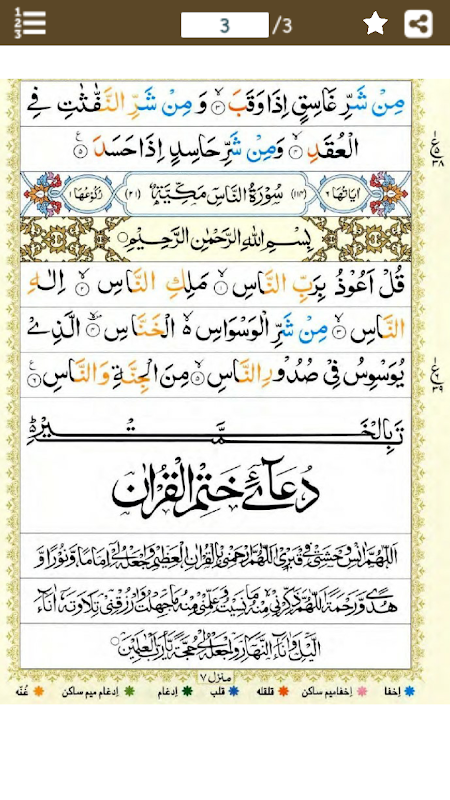 3 /3
مِنْ شَرِّ غَاسِقٍ اِذَا وَقَبَ ۙ۝۳ وَ مِنْ شَرِّ النَّفّٰثٰتِ فِي
الْعُقَدِ ۙ۝۴ وَمِنْ شَرِّ حَاسِدٍ اِذَا حَسَدَ ۝۵
اٰیَاتُهَا ۶ (۱۱۴) سُوْرَةُ النَّاسِ مَكِّيَّةٌ (۲۱) رُكُوْعُهَا ۱
بِسْمِ اللّٰهِ الرَّحْمٰنِ الرَّحِيْمِ
قُلْ اَعُوْذُ بِرَبِّ النَّاسِ ۙ۝۱ مَلِكِ النَّاسِ ۙ۝۲ اِلٰهِ
النَّاسِ ۙ۝۳ مِنْ شَرِّ الْوَسْوَاسِ ۙ۬ الْخَنَّاسِ ۪ۙ۝۴ الَّذِيْ
يُوَسْوِسُ فِيْ صُدُوْرِ النَّاسِ ۙ۝۵ مِنَ الْجِنَّةِ وَالنَّاسِ ۝۶
تَمَّتْ بِالْخَيْرِ
دُعَآئے خَتْمُ الْقُرْاٰن
اَللّٰهُمَّ اٰنِسْ وَحْشَتِيْ فِيْ قَبْرِيْ اَللّٰهُمَّ ارْحَمْنِيْ بِالْقُرْاٰنِ الْعَظِيْمِ وَاجْعَلْهُ لِيْ اِمَامًا وَّنُوْرًا وَّ
هُدًى وَّرَحْمَةً اَللّٰهُمَّ ذَكِّرْنِيْ مِنْهُ مَا نَسِيْتُ وَعَلِّمْنِيْ مِنْهُ مَا جَهِلْتُ وَارْزُقْنِيْ تِلَاوَتَهٗ اٰنَآءَ
الَّيْلِ وَاٰنَآءَ النَّهَارِ وَاجْعَلْهُ لِيْ حُجَّةً يَّا رَبَّ الْعٰلَمِيْنَ
منزل ۷
اخفا اخفامیم ساکن قلقله قلب ادغام ادغام میم ساکن غنّه